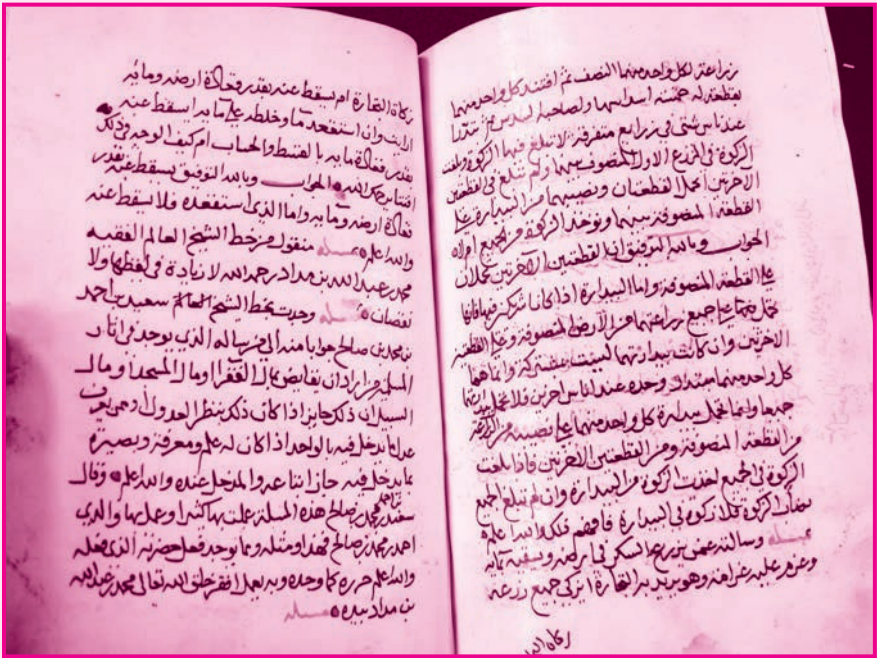 زراعته لكل واحد منهما النصف ثم اقتعد كل واحد منهما
بقطعة له خمسة اسداسها ولصاحبه السدس
عند ناس شتى في زرايع متفرقة لا تبلغ فيها الزكوة وبلغت
الزكوة في الزرع الاول المنصوف بينهما ولم تبلغ في القطعتين
الاخرتين اتحمل القطعتان ونصيبهما من البيدارة على
القطعة المنصوفة بينهما وتوخذ الزكوة من الجميع ام لا
الجواب وبالله التوفيق ان القطعتين الاخرتين تحملان
على القطعة المنصوفة واما البيدارة اذا كانا شركة فيها فانها
تحمل على جميع زراعتهما من الارض المنصوفة وعلى القطعتين
الاخرتين وان كانت بيدارتهما ليست مشتركة وانما هما
كل واحد منهما مبتدا وحده عند اناس اخرين فلا تحمل بيدارتهما
جميعا وانما تحمل بيدارة كل واحد منهما على نصيبه من الزراعة
من القطعة المنصوفة ومن القطعتين الاخرتين فاذا بلغت
الزكوة في الجميع اخذت الزكوة من البيدارة وان لم تبلغ الجميع
نصاب الزكوة فلا زكوة في البيدارة فافهم ذلك والله اعلم
مسئلة وسالته عمن يزرع السكر في ارضه ويسقيه بمايه
وغرم عليه غرامة وهو يريد به التجارة ايزكي جميع زرعه
زكاة التجارة ام يسقط عنه بقدر قعادة ارضه ومايه
ارايت وان استقعد ما وخلطه على مايه ايسقط عنه
بقدر قعادة مايه بالقسط والحساب ام كيف الوجه في ذلك
افتنا يرحمك الله الجواب وبالله التوفيق يسقط عنه بقدر
قعادة ارضه ومايه واما الذي استقعده فلا يسقط عنه
والله اعلم مسئلة منقول من خط الشيخ العالم الفقيه
محمد بن عبد الله بن مداد رحمه الله لا زيادة في لفظها ولا
نقصان مسئلة وجدت بخط الشيخ العالم سعيد بن احمد
بن محمد بن صالح جوابا منه الى من ساله الذي يوجد في اثار
المسلمين من اراد ان يقايض بمال الفقرا او مال المسجد او مال
السبيل ان ذلك جايز اذا كان ذلك بنظر العدول او ممن يعرف
عدل ما يدخل فيه بالواحد اذا كان له علم ومعرفة وبصيرة
بما يدخل فيه جاز اتباعه والمدخل عنده والله اعلم وقال
سعيد بن احمد بن محمد بن صالح هذه المسئلة عملت بها كثيرا وعمل بها والدي
احمد بن محمد بن صالح فبهذا ومثله ومما يوجد فعل حضرته الذي فعله
والله اعلم حرره كما وجده وبه يعمل افقر خلق الله تعالى محمد بن عبد الله
بن مداد بيده مسئلة